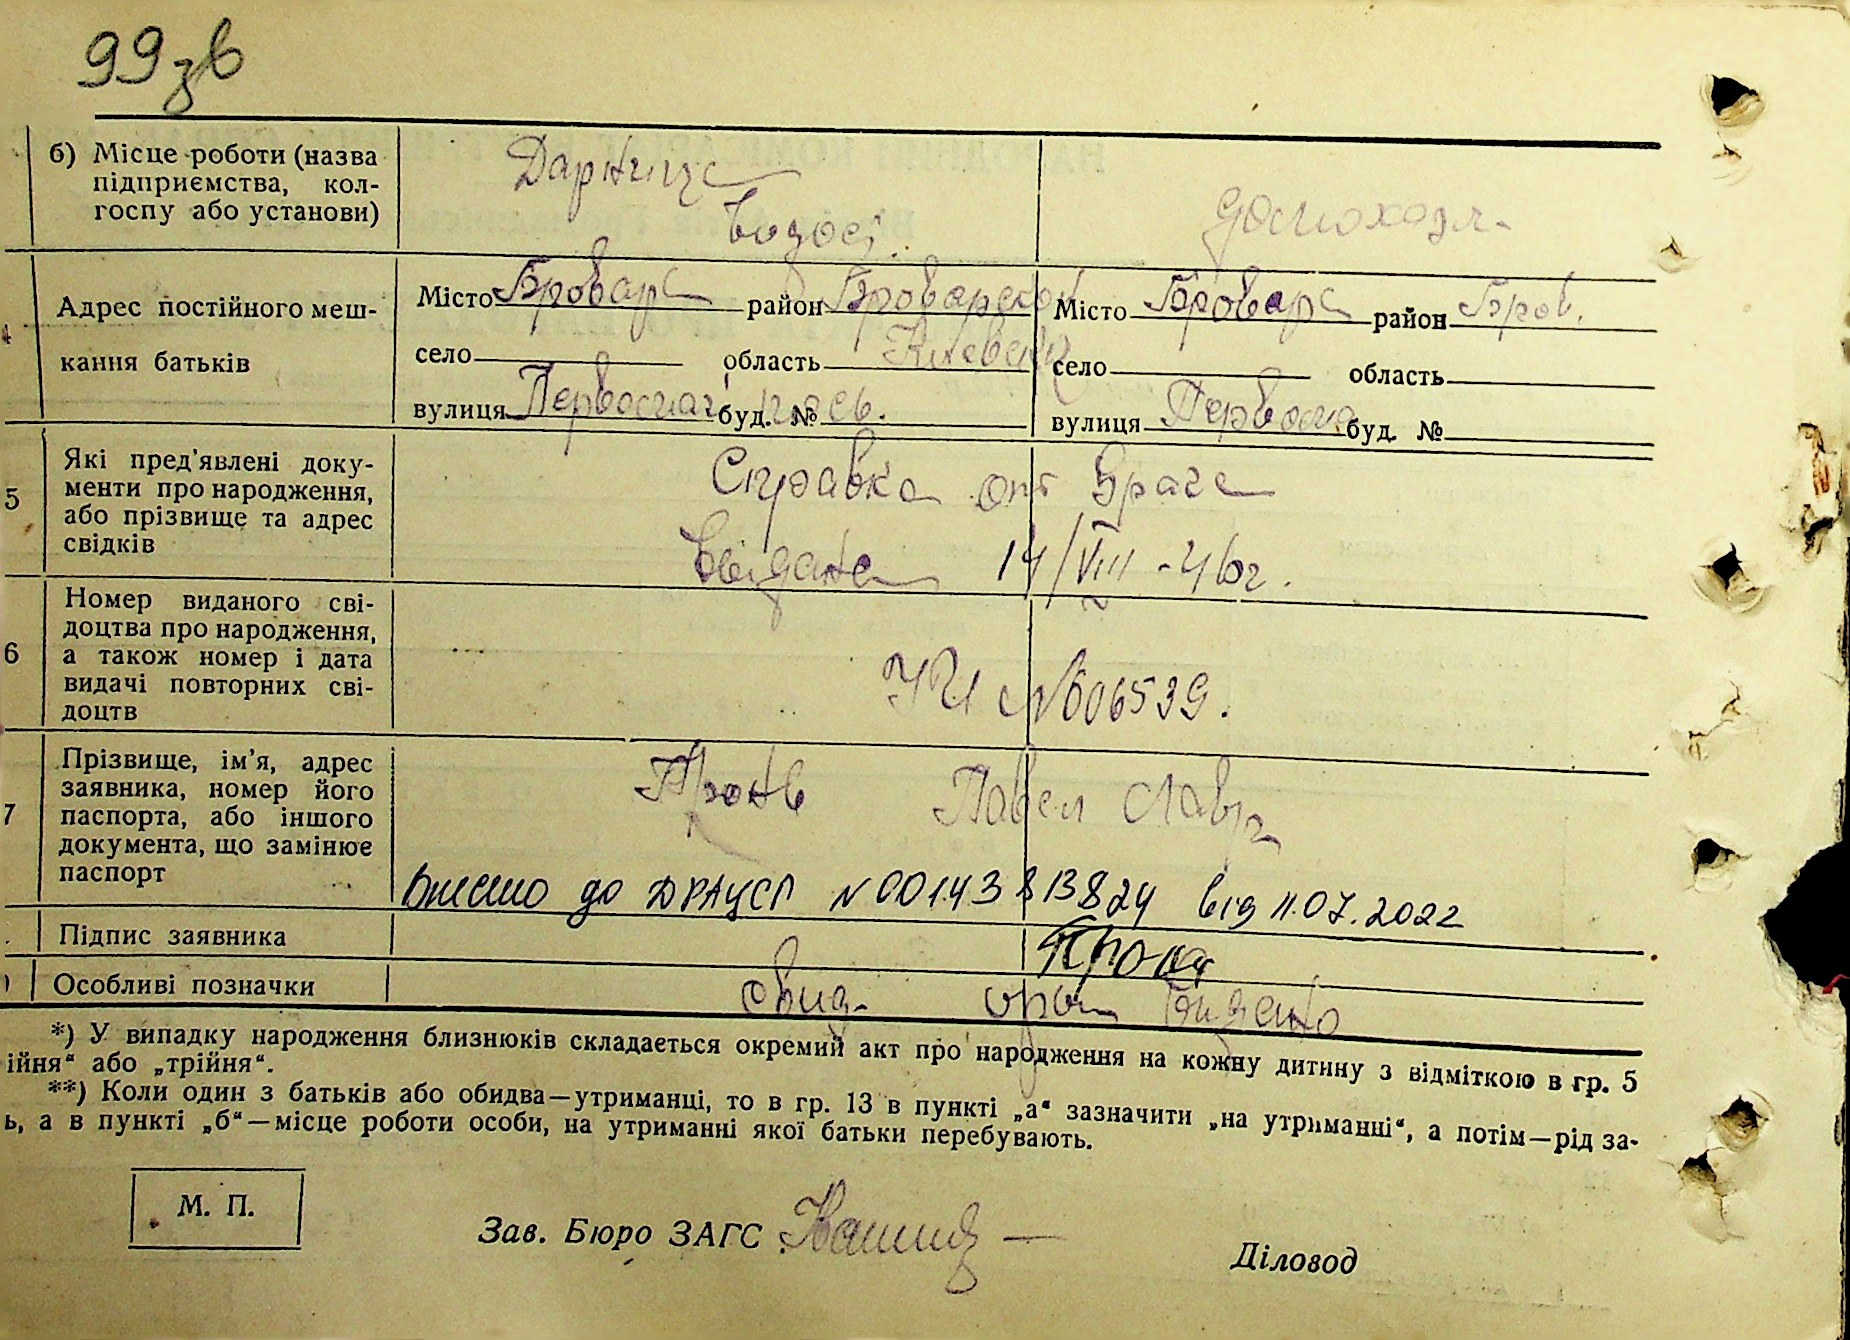 99 зв
б) Місце роботи (назва
підприємства, кол-
госпу або установи)
Дарница
домохоз.
4
Адрес постійного меш-
кання батьків
Місто Бровары район Броварской
село область Киевск
вулиця Первомай буд. №
Місто Бровары район Бров.
село область
вулиця Первома буд. №
5
Які пред'явлені доку-
менти про народження,
або прізвище та адрес
свідків
Справка от врача
выдана 14/VIII - 46 г.
6
Номер виданого сві-
доцтва про народження,
а також номер і дата
видачі повторних сві-
доцтв
№ 006539.
7
Прізвище, ім'я, адрес
заявника, номер його
паспорта, або іншого
документа, що замінює
паспорт
Павел
Внесено до ДРАЦСГ № 00143813824 від 11.07.2022
Підпис заявника
Особливі позначки
*) У випадку народження близнюків складається окремий акт про народження на кожну дитину з відміткою в гр. 5
ійня“ або „трійня“.
**) Коли один з батьків або обидва—утриманці, то в гр. 13 в пункті „а“ зазначити „на утриманні“, а потім—рід за-
ь, а в пункті „б“—місце роботи особи, на утриманні якої батьки перебувають.
М. П.
Зав. Бюро ЗАГС
Діловод